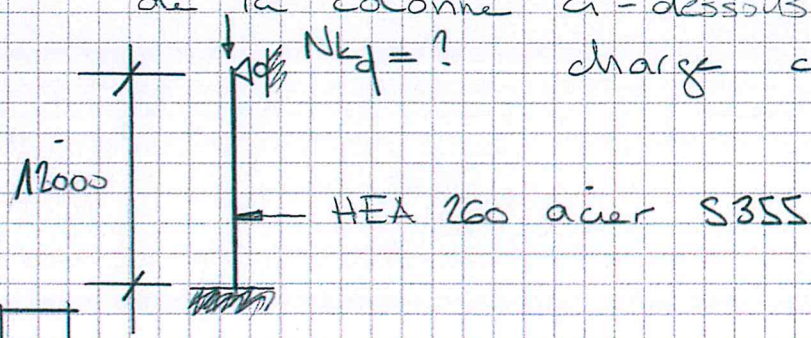 de la colonne ci-dessous
Nkd = ? charge
12000
HEA 260 acier S355